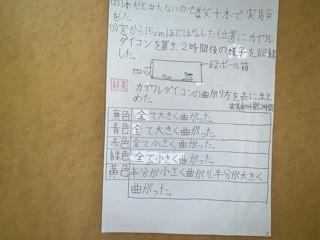 (2)1本だと出れないので数十本で実験
をした。
(3)窓から15cmほどはなした位置にカイワレ
ダイコンを置き、2時間後の様子を記録
した。
段ボール箱
結果
カイワレダイコンの曲がり方を表にまと
めた。
実験時間2時間
無色 全て大きく曲がった。
青色 全て大きく曲がった。
赤色 全て小さく曲がった。
緑色 全て小さく曲がった。
黄色 半分が小さく曲がり、半分が大きく
曲がった。